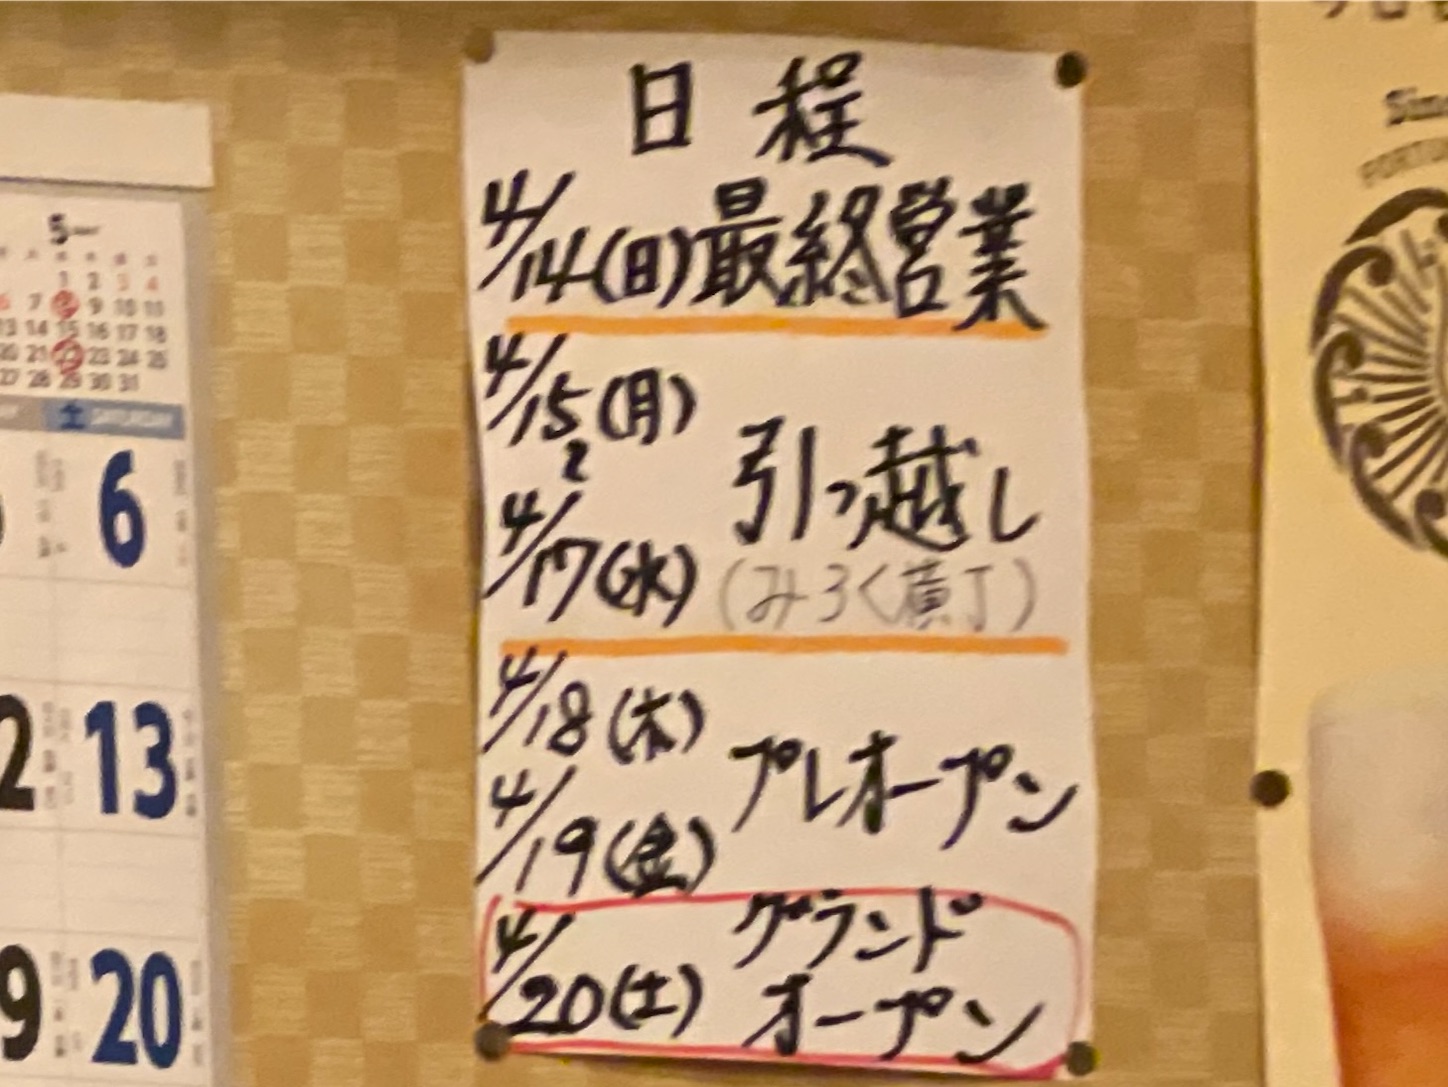 日程
4/14(日)最終営業
4/15(月)
2
4/17(水)
引っ越し
(みろく横丁)
4/18(木)
4/19(金)
プレオープン
4/20(土)
グランド
オープン
5
1 2 3 4
7 8 9 10 11
13 14 15 16 17 18
20 21 22 23 24 25
27 28 29 30 31
土 SATURDAY
6
13
20